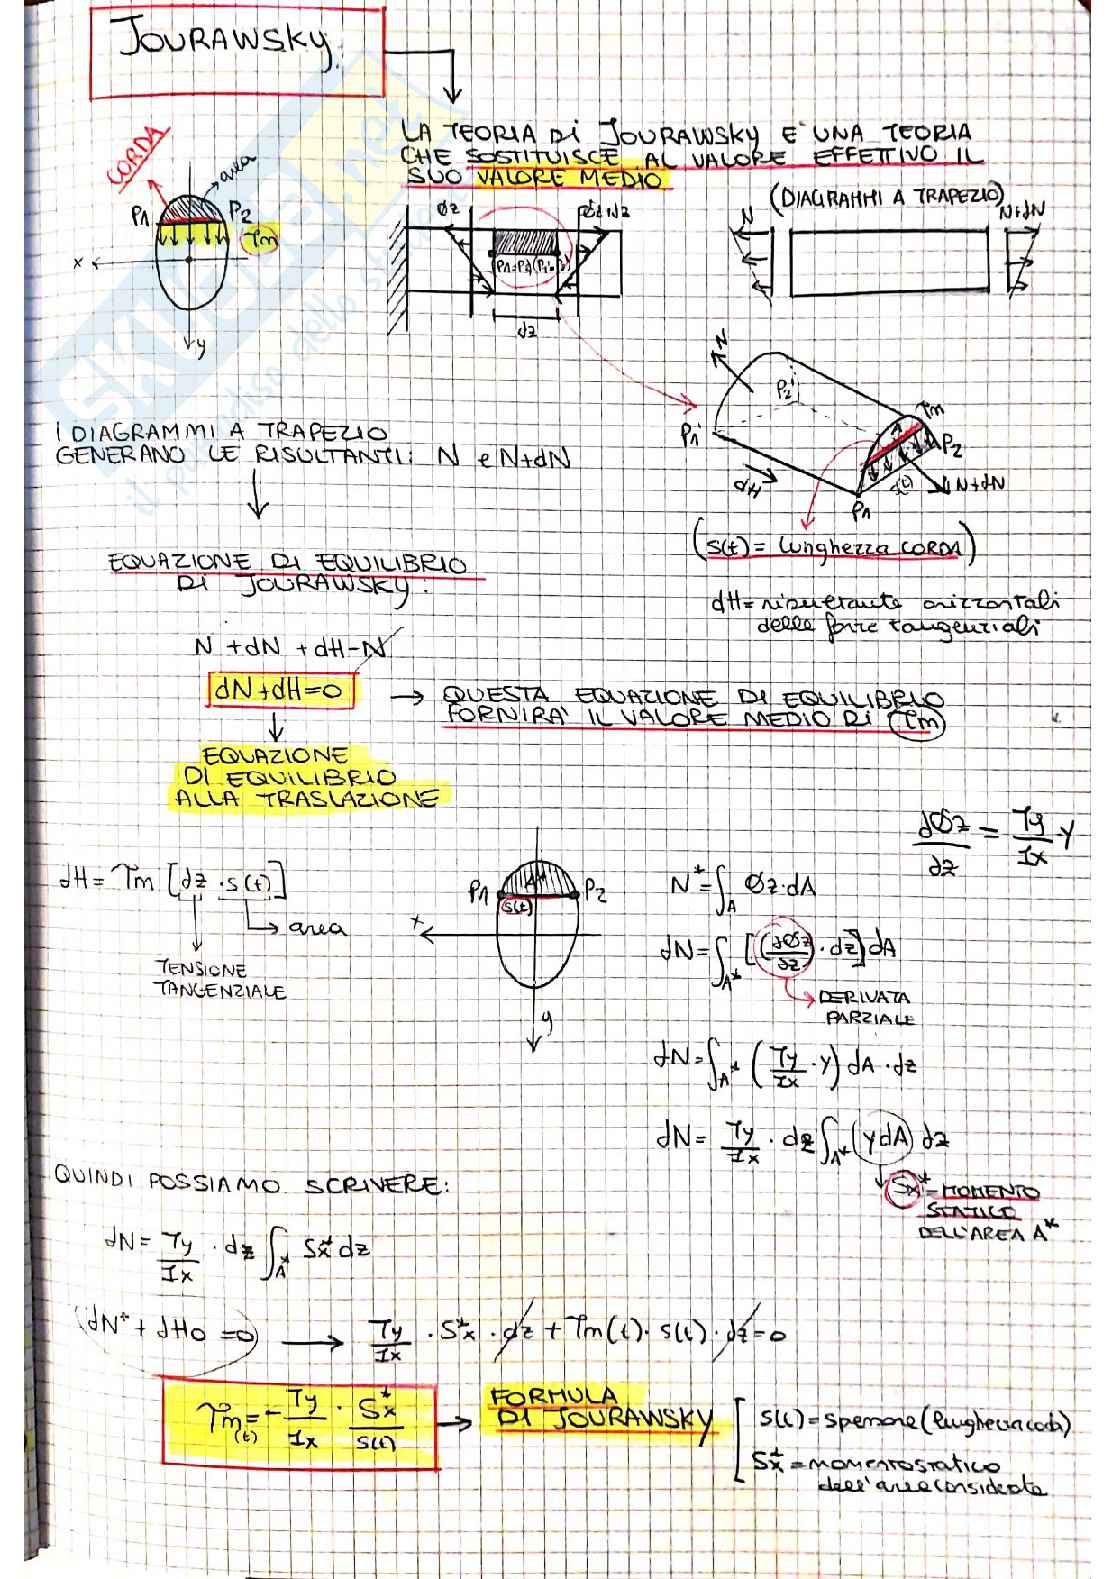 JOURAWSKY.
LA TEORIA DI JOURAWSKY E' UNA TEORIA
CHE SOSTITUISCE AL VALORE EFFETTIVO IL
SUO VALORE MEDIO
CORDA
area
P1
P2
τm
x
y
σz
dz
(DIAGRAMMI A TRAPEZIO)
N
N+dN
N
P2'
P1'
τm
P2
s(t)
N+dN
dH
P1
I DIAGRAMMI A TRAPEZIO
GENERANO LE RISULTANTI: N e N+dN
(s(t) = lunghezza CORDA)
EQUAZIONE DI EQUILIBRIO
DI JOURAWSKY:
dH= risultante orizzontali
delle forze tangenziali
N + dN + dH - N
dN + dH = 0 → QUESTA EQUAZIONE DI EQUILIBRIO
FORNIRA' IL VALORE MEDIO DI τm
EQUAZIONE
DI EQUILIBRIO
ALLA TRASLAZIONE
dσz/dz = Ty/Ix · y
dH = τm [dz · s(t)]
→ area
TENSIONE
TANGENZIALE
P1
A*
P2
s(t)
x
y
N* = ∫A σz · dA
dN = ∫A* [(dσz/dz) · dz] dA
→ DERIVATA
PARZIALE
dN = ∫A* (Ty/Ix · y) dA · dz
dN = Ty/Ix · dz ∫A* (y dA) dz
Sx* = MOMENTO
STATICO
DELL'AREA A*
QUINDI POSSIAMO SCRIVERE:
dN = Ty/Ix · dz ∫A* Sx* dz
(dN* + dH0 = 0) → Ty/Ix · Sx* · dz + τm(t) · s(t) · dz = 0
τm(t) = - Ty/Ix · Sx*/s(t) → FORMULA
DI JOURAWSKY
s(t) = spessore (lunghezza corda)
Sx* = momento statico
dell'area considerata